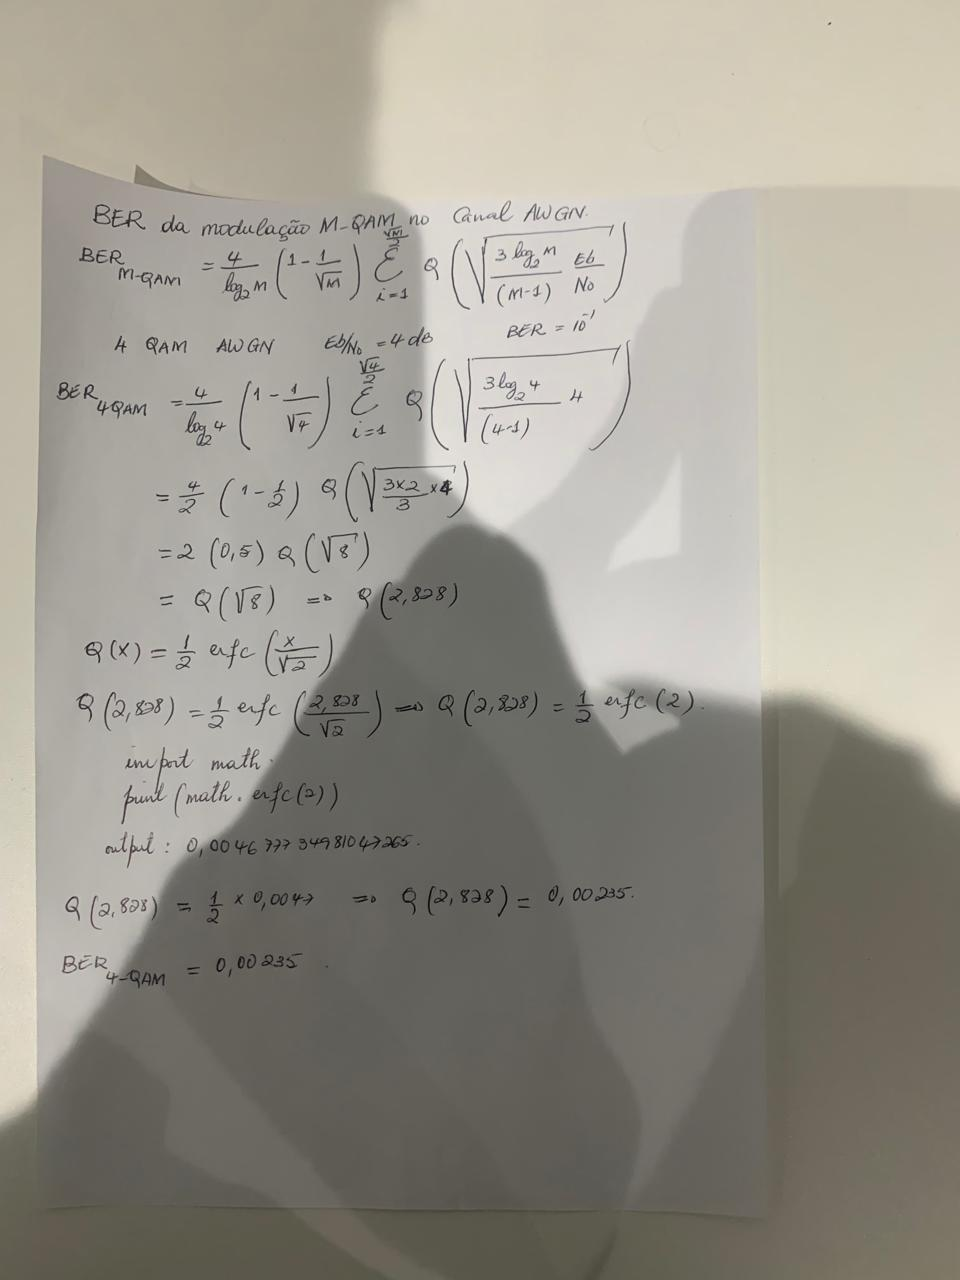 BER da modulação M-QAM no Canal AWGN.
BER_M-QAM = 4/log₂M (1 - 1/√M) Σ_{i=1}^{√M/2} Q(√(3 log₂M/(M-1) Eb/No))
4 QAM AWGN Eb/No = 4 dB BER = 10⁻¹
BER_4QAM = 4/log₂4 (1 - 1/√4) Σ_{i=1}^{√4/2} Q(√(3 log₂4/(4-1) 4))
= 4/2 (1 - 1/2) Q(√(3x2/3 x4))
= 2 (0,5) Q(√8)
= Q(√8) => Q(2,828)
Q(x) = 1/2 erfc(x/√2)
Q(2,828) = 1/2 erfc(2,828/√2) => Q(2,828) = 1/2 erfc(2).
import math.
print(math.erfc(2))
output: 0,004677734981047265.
Q(2,828) = 1/2 x 0,0047 => Q(2,828) = 0,00235.
BER_4-QAM = 0,00235.